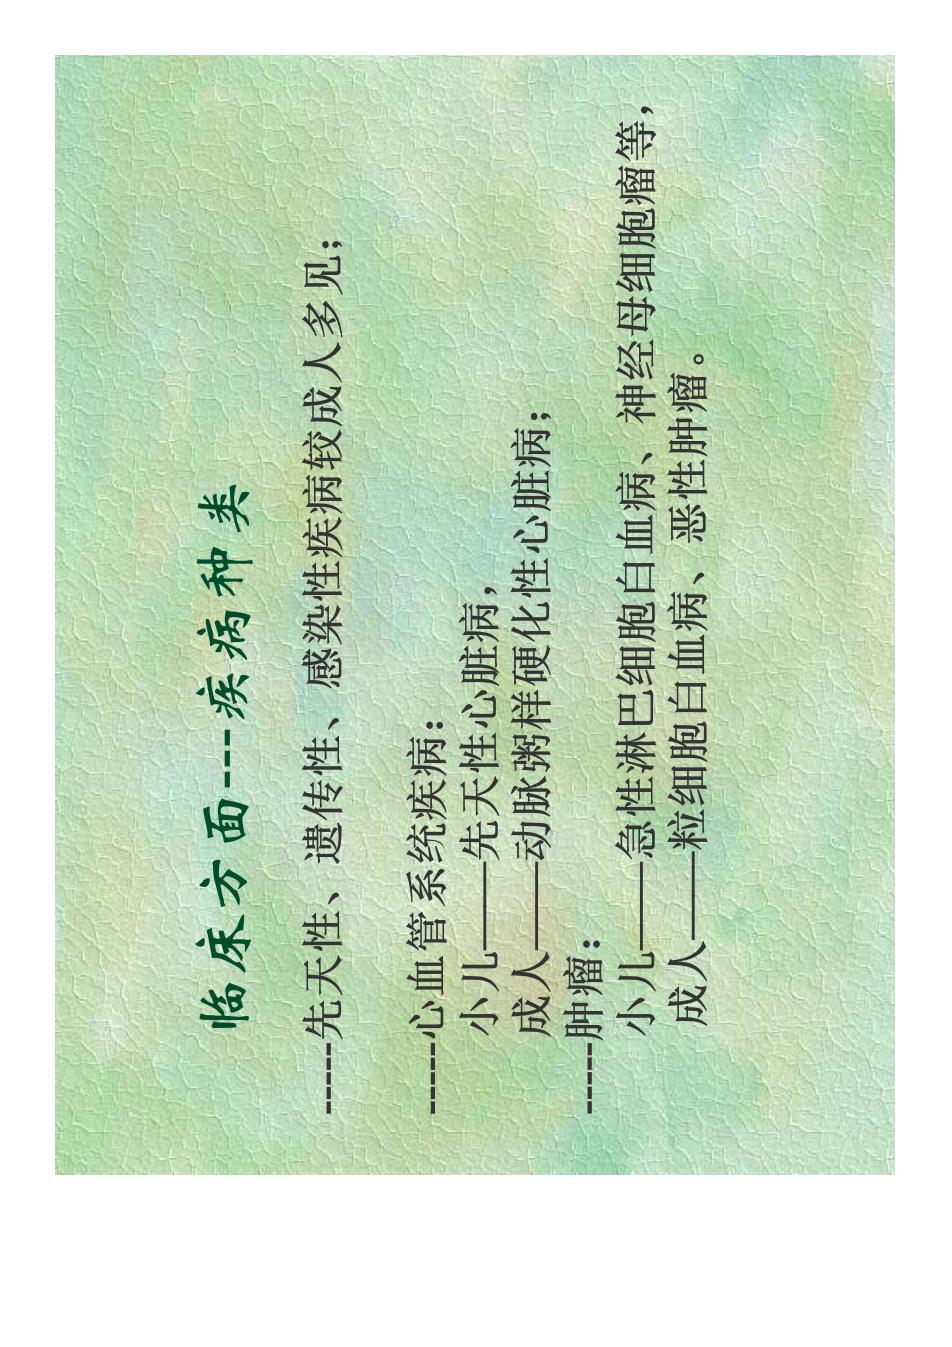 临床方面---疾病种类
-----先天性、遗传性、感染性疾病较成人多见；
-----心血管系统疾病：
小儿——先天性心脏病，
成人——动脉粥样硬化性心脏病；
-----肿瘤：
小儿——急性淋巴细胞白血病、神经母细胞瘤等，
成人——粒细胞白血病、恶性肿瘤。